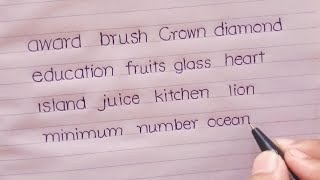 award brush Crown diamond
education fruits glass heart
island juice kitchen lion
minimum number ocean